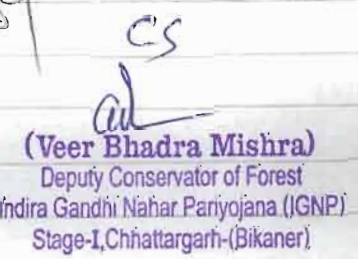 CS
(Veer Bhadra Mishra)
Deputy Conservator of Forest
Indira Gandhi Nahar Pariyojana (IGNP)
Stage-I, Chhattargarh-(Bikaner)